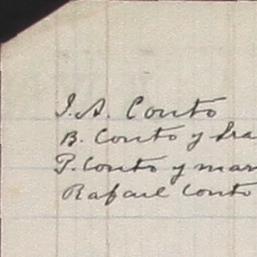 J. A. Couto
B. Couto y Sra
P. Couto y mar
Rafael Couto